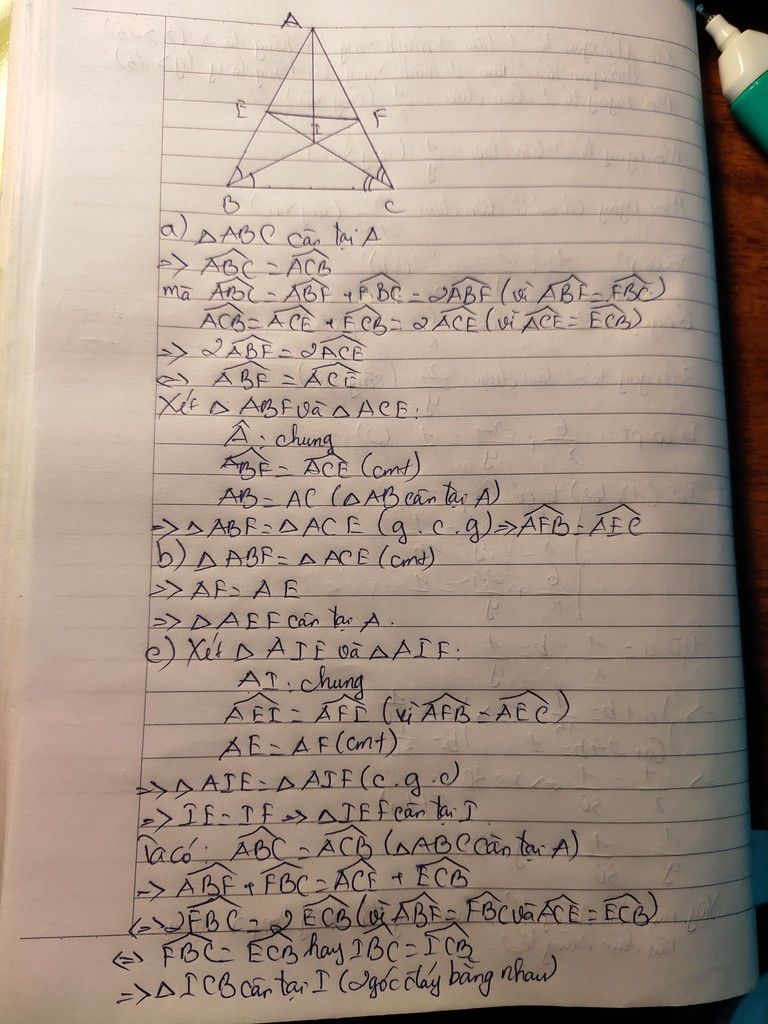 A
E
F
I
B
C
a) △ABC cân tại A
=> \widehat{ABC} = \widehat{ACB}
mà \widehat{ABC} = \widehat{ABF} + \widehat{FBC} = 2\widehat{ABF} (vì \widehat{ABF} = \widehat{FBC})
\widehat{ACB} = \widehat{ACE} + \widehat{ECB} = 2\widehat{ACE} (vì \widehat{ACE} = \widehat{ECB})
=> 2\widehat{ABF} = 2\widehat{ACE}
<=> \widehat{ABF} = \widehat{ACE}
Xét △ABF và △ACE:
\widehat{A}: chung
\widehat{ABF} = \widehat{ACE} (cmt)
AB = AC (△AB cân tại A)
=> △ABF = △ACE (g.c.g) => \widehat{AFB} = \widehat{AEC}
b) △ABF = △ACE (cmt)
=> AF = AE
=> △AEF cân tại A.
c) Xét △AIE và △AIF:
AI: chung
\widehat{AEI} = \widehat{AFI} (vì \widehat{AFB} = \widehat{AEC})
AE = AF (cmt)
=> △AIE = △AIF (c.g.c)
=> IE = IF => △IEF cân tại I.
Ta có: \widehat{ABC} = \widehat{ACB} (△ABC cân tại A)
=> \widehat{ABF} + \widehat{FBC} = \widehat{ACE} + \widehat{ECB}
<=> 2\widehat{FBC} = 2\widehat{ECB} (vì \widehat{ABF} = \widehat{FBC} và \widehat{ACE} = \widehat{ECB})
<=> \widehat{FBC} = \widehat{ECB} hay \widehat{IBC} = \widehat{ICB}
=> △ICB cân tại I (2 góc đáy bằng nhau)